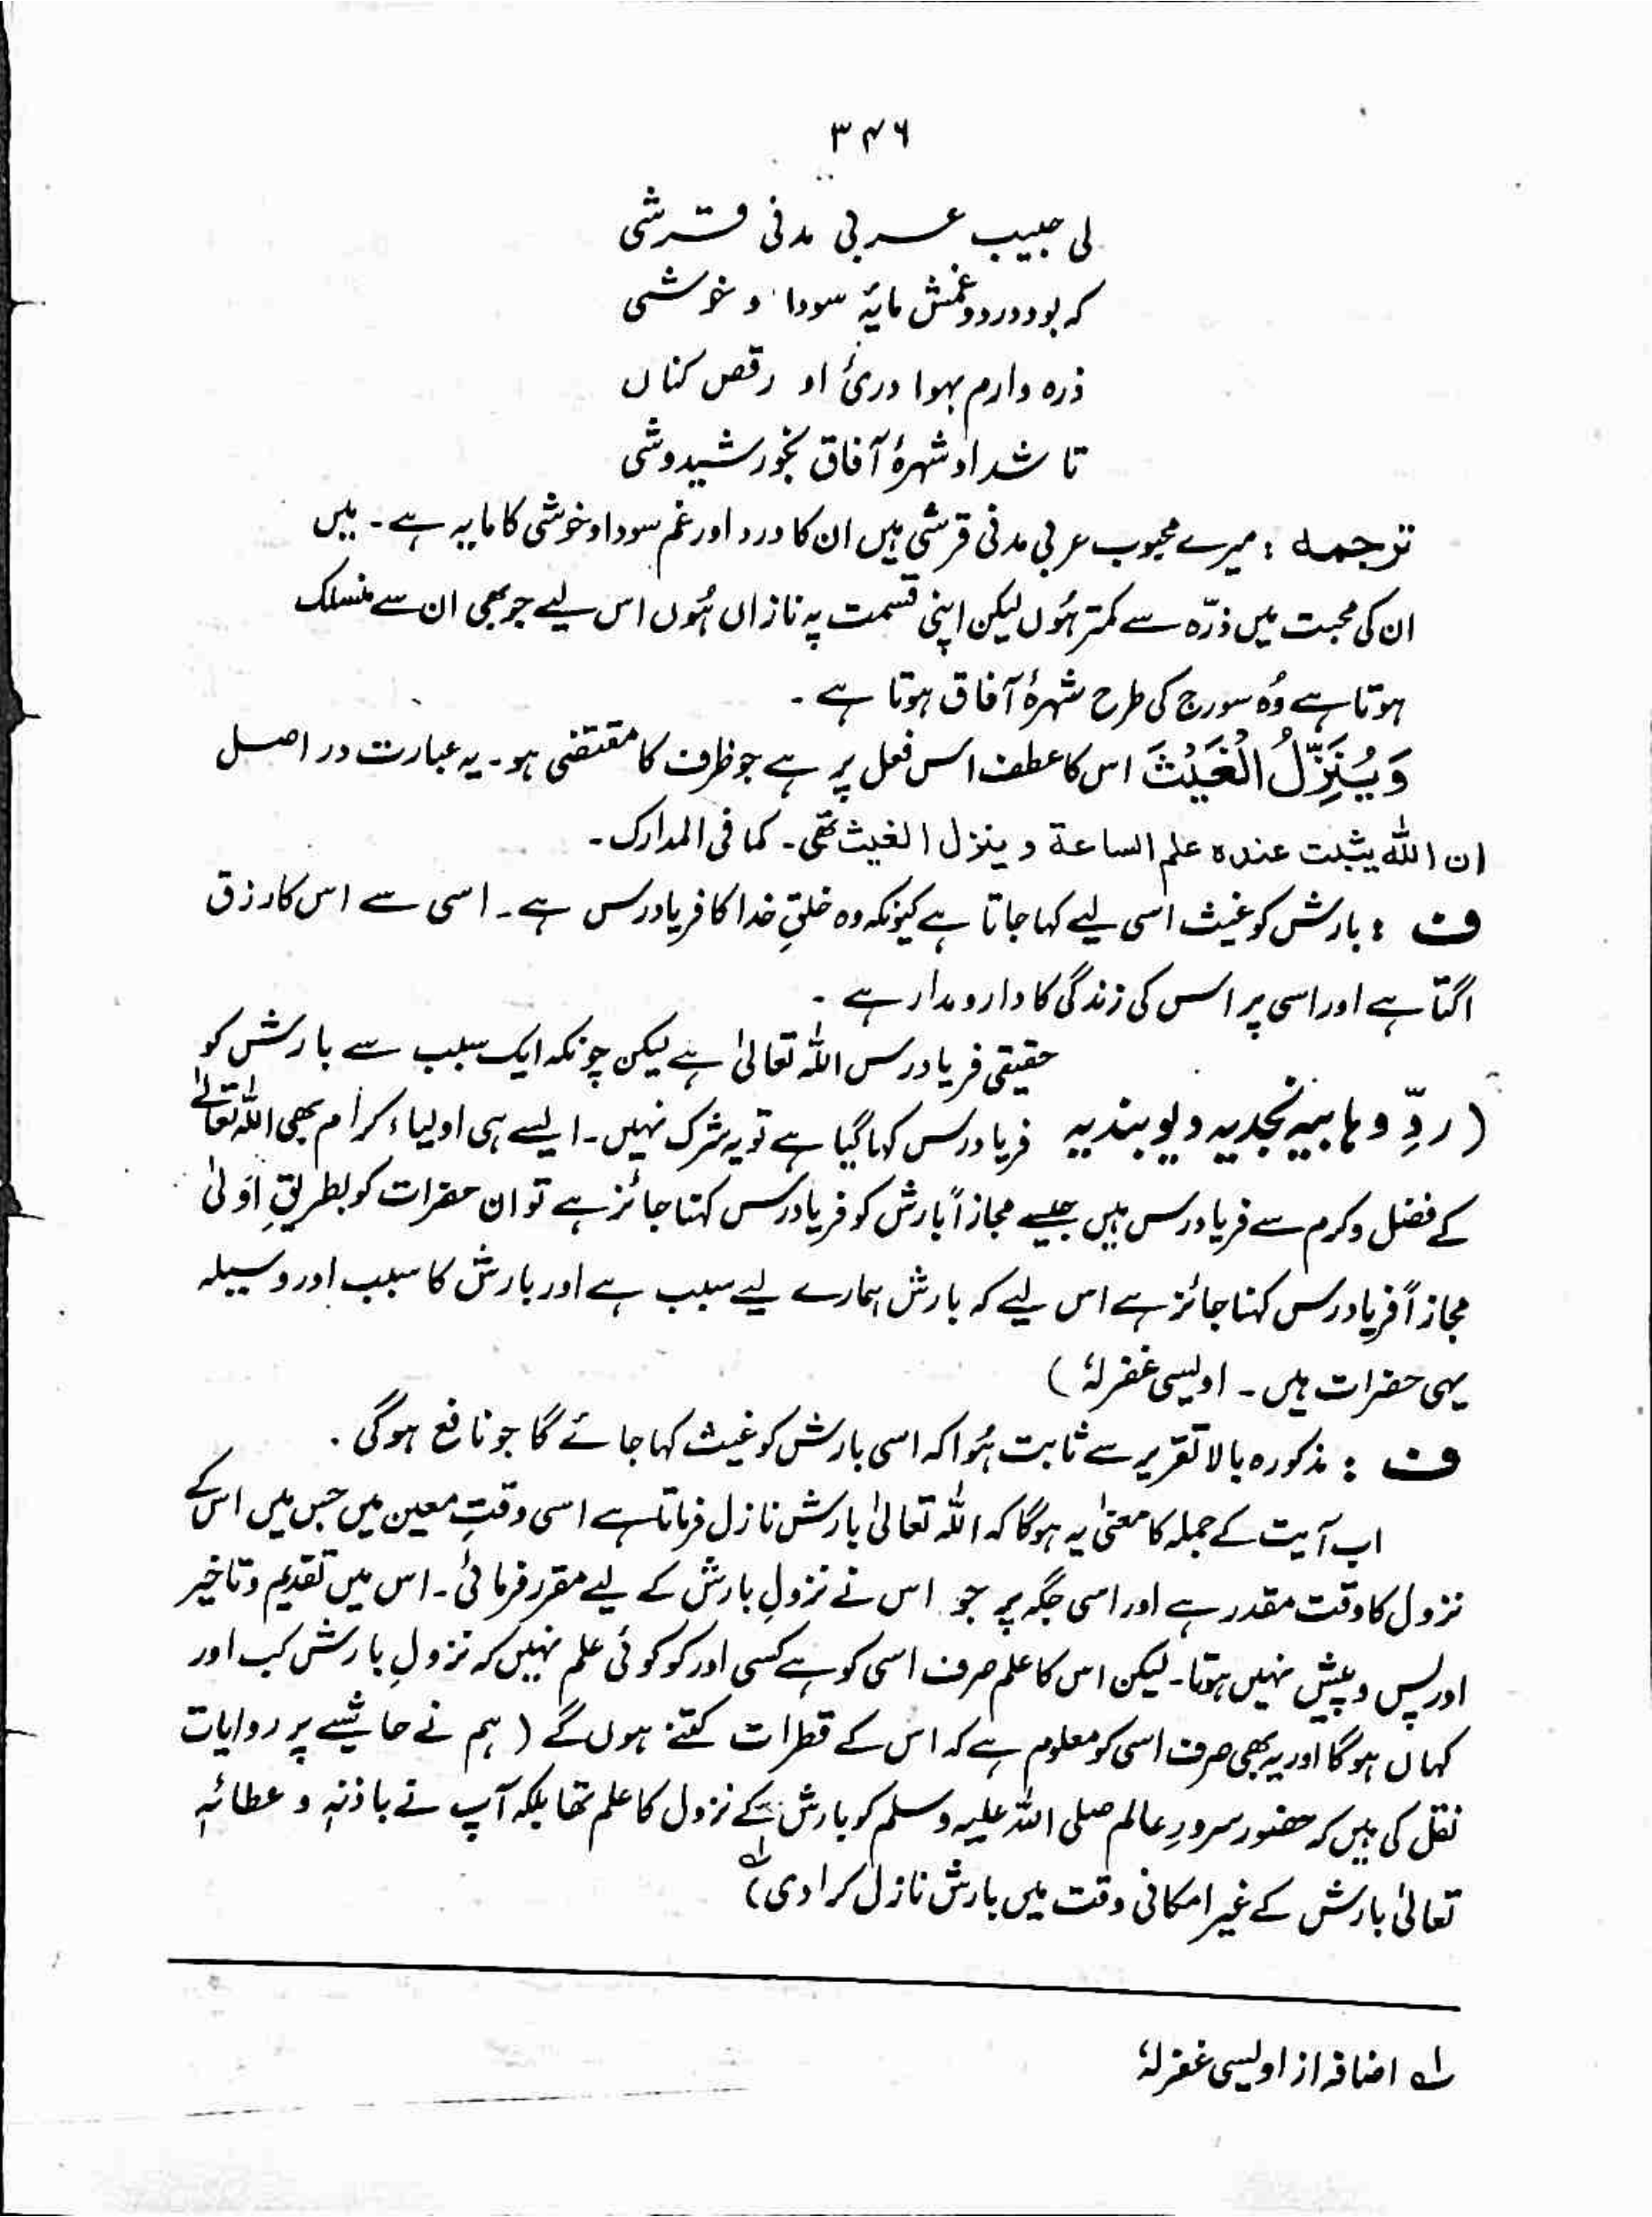 ۳۴۶
لی حبیب عربی مدنی قرشی
که بود دردو غمش مایۂ سودا و خوشی
ذره وارم بہوا دریٔ او رقص کناں
تا شد او شہرۂ آفاق بخورشید وشی
ترجمہ : میرے محبوب عربی مدنی قرشی ہیں ان کا درد اور غم سودا و خوشی کا مایہ ہے۔ میں
ان کی محبت میں ذرّہ سے کمتر ہُوں لیکن اپنی قسمت پہ نازاں ہُوں اس لیے جو بھی ان سے منسلک
ہوتا ہے وُہ سورج کی طرح شہرۂ آفاق ہوتا ہے۔
وَيُنَزِّلُ الْغَيْثَ اس کا عطف اس فعل پر ہے جو ظرف کا مقتضی ہو۔ یہ عبارت در اصل
ان اللہ یثبت عندہ علم الساعة و ینزل الغیث تھی۔ کما فی المدارک۔
ف : بارش کو غیث اسی لیے کہا جاتا ہے کیونکہ وہ خلقِ خدا کا فریادرس ہے۔ اسی سے اس کا رزق
اگتا ہے اور اسی پر اس کی زندگی کا دارومدار ہے۔
حقیقی فریادرس اللہ تعالیٰ ہے لیکن چونکہ ایک سبب سے بارش کو
(ردِّ وہابیہ نجدیہ دیوبندیہ فریادرس کہا گیا ہے تو یہ شرک نہیں۔ ایسے ہی اولیاء کرام بھی اللہ تعالیٰ
کے فضل و کرم سے فریادرس ہیں جیسے مجازاً بارش کو فریادرس کہنا جائز ہے تو ان حضرات کو بطریقِ اَولیٰ
مجازاً فریادرس کہنا جائز ہے اس لیے کہ بارش ہمارے لیے سبب ہے اور بارش کا سبب اور وسیلہ
یہی حضرات ہیں۔ اویسی غفرلہٗ)
ف : مذکورہ بالا تقریر سے ثابت ہُوا کہ اسی بارش کو غیث کہا جائے گا جو نافع ہوگی۔
اب آیت کے جملہ کا معنیٰ یہ ہوگا کہ اللہ تعالیٰ بارش نازل فرماتا ہے اسی وقتِ معین میں جس میں اس کے
نزول کا وقت مقدر ہے اور اسی جگہ پر جو اس نے نزولِ بارش کے لیے مقرر فرمائی۔ اس میں تقدیم و تاخیر
اور پس و پیش نہیں ہوتا۔ لیکن اس کا علم صرف اسی کو ہے کسی اور کو کوئی علم نہیں کہ نزولِ بارش کب اور
کہاں ہوگا اور یہ بھی صرف اسی کو معلوم ہے کہ اس کے قطرات کتنے ہوں گے (ہم نے حاشیے پر روایات
نقل کی ہیں کہ حضور سرورِ عالم صلی اللہ علیہ وسلم کو بارش کے نزول کا علم تھا بلکہ آپ نے باذنہٖ و عطائہٖ
تعالیٰ بارش کے غیر امکانی وقت میں بارش نازل کرا دی)؂۱
؂۱ اضافہ از اویسی غفرلہٗ